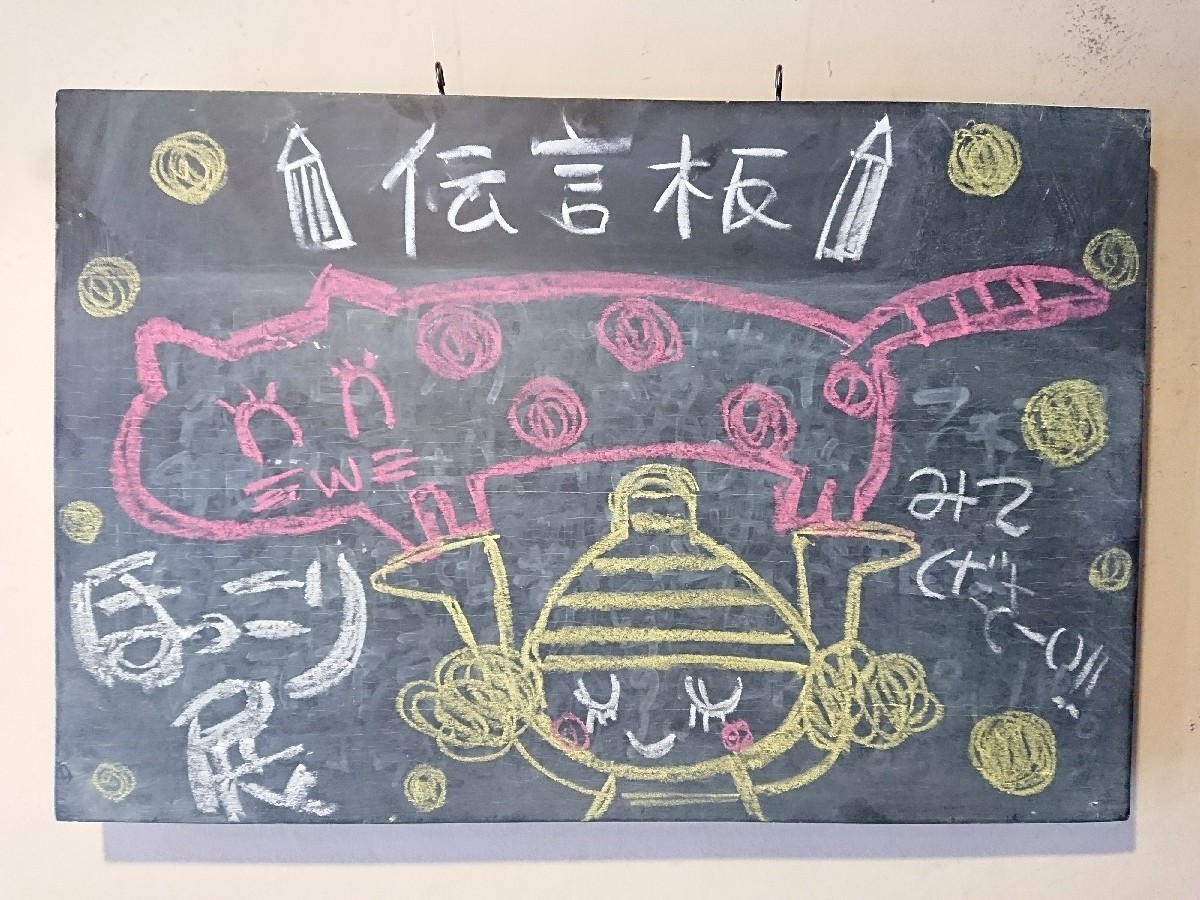 伝言板
ほっこり
展
みて
くださ
ーい!!